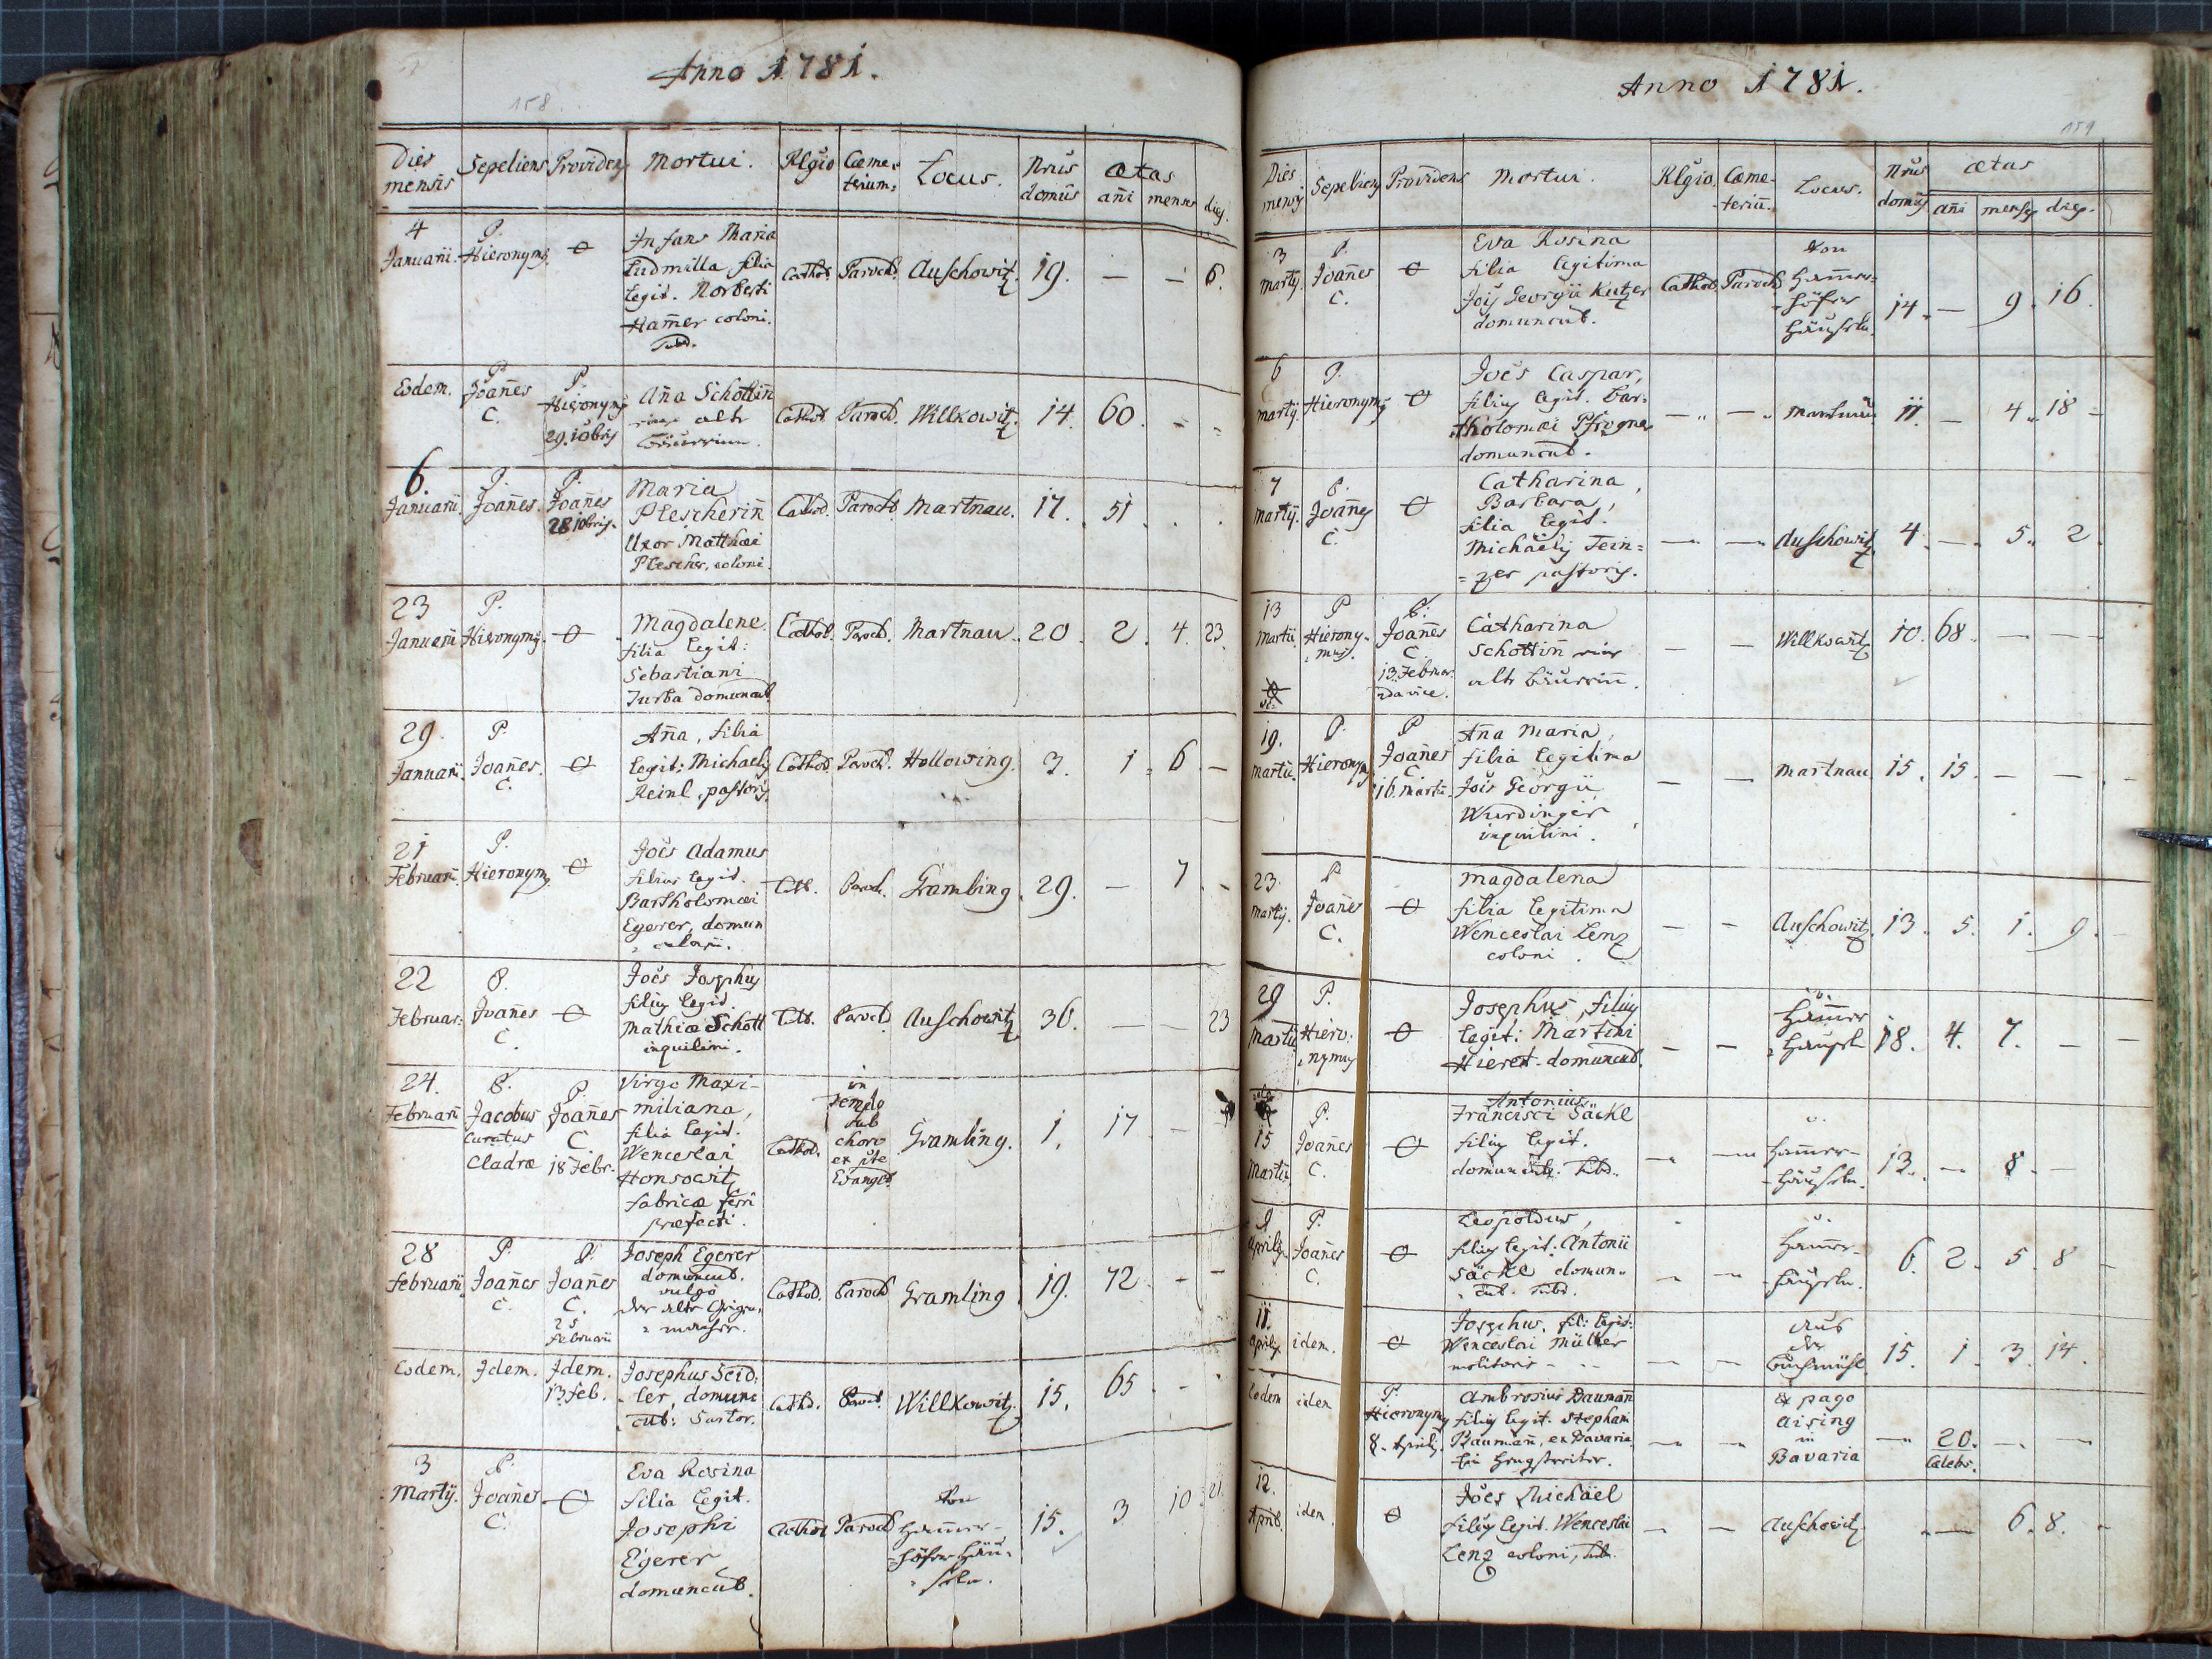 Anno 1781.
158
Dies mensis Sepeliens Providens Mortui. Rlgio Cæme-terium. Locus. Nrus domus ætas añi menses dies.
4 Januarii. P. Hieronymus O Infans Maria
Ludmilla filia
legit. Norberti
Ham̄er coloni.
Subd.
Cathol. Paroch. Auschowitz. 19. — — 6.
Eodem. P. Joan̄es C. P. Hieronymus 29. 10bris An̄a Schottin̄
eine alte
Bäurinn.
Cathol. Paroch. Willkowitz. 14. 60. - -
6. Januarii. P. Joan̄es. P. Joan̄es 28 10bris. Maria
Plescherin̄
Uxor Matthæi
Plescher, coloni.
Cathol. Paroch. Martnau. 17. 51. . .
23 Januarii P. Hieronymus. O Magdalene
filia legit:
Sebastiani
Turba domuncul.
Cathol. Paroch. Martnau. 20. 2. 4. 23.
29. Januarii. P. Joan̄es. C. O An̄a, filia
legit: Michaelis
Reinl, pastoris.
Cathol. Paroch. Hollowing. 3. 1. 6. —
21 Februarii. P. Hieronymus O Joës Adamus
filius legit.
Bartholomæi
Egerer, domun
cularii.
Cath. Paroch. Gramling. 29. — 7. -
22 Februar: P. Joan̄es C. O Joës Josephus
filius legit.
Mathiæ Schott
inquilini.
Cath. Paroch. Auschowitz 36. — — 23
24. Februarii P. Jacobus Curatus Cladræ P. Joan̄es C. 18 Febr. Virgo Maxi-
miliana,
filia legit.
Wenceslai
Honsowitz
fabricæ ferri
præfecti.
Cathol. in templo sub choro ex pte Evangel. Gramling. 1. 17. -
28 Februarii P. Joan̄es C. P. Joan̄es C. 25 Februarii Joseph Egerer
domuncul.
vulgo
der alte
Cathol. Paroch Gramling 19. 72. - -
Eodem. Idem. Idem. 13. feb. Josephus Seid:
ler, domun
cul: Sartor.
Cathol. Paroch. Willkowitz. 15. 65. - -
3 Martij. P. Joan̄es. C. O Eva Rosina
filia legit.
Josephi
Egerer
domuncul.
Cathol Paroch von Ham̄er-
höfer Häu-
seln.
15. 3 10. 21.
Anno 1781.
159
Dies mensis Sepeliens Providens Mortui. Rlgio. Cæme-teriu. Locus. Nrus domus ætas añi menses dies.
3 Martij. P. Joan̄es C. O Eva Rosina
filia legitima
Jois Georgii Kutzer
domuncul.
Cathol. Paroch von Ham̄er-
höfer
Häuseln.
14. — 9. 16.
6 Martij. P. Hieronymus O Joës Caspar,
filius legit. Bar-
tholomæi Pfrogner
domuncul.
— — Martnau 11. — 4. 18 -
7 Martij. P. Joan̄es C. O Catharina,
Barbara,
filia legit.
Michaelis Tein=
=zer pastoris.
— — Auschowitz 4. — 5. 2.
13 Martii. P Hierony-mus. P. Joan̄es C. 13. Februar. 2da vice. Catharina
Schottin̄ eine
alte Bäurin̄.
— — Willkowitz 10. 68. — —
19. Martii. P. Hieronymus P Joan̄es C. 16. Martii. An̄a Maria,
filia legitima
Jois Georgii
Wurdinger
inquilini.
— — Martnau 15. 15. — —
23. Martij. P Joan̄es C. O Magdalena
filia legitima
Wenceslai Lenz
coloni.
— — Auschowitz. 13. 5. 1. 9.
29 Martii P. Hiero-nymus O Josephus, filius
legit: Martini
Hieret domuncul.
— — Ham̄er
häuseln
18. 4. 7. — —
15 Martii. P. Joan̄es C. O Antonius
Francisci Säckl
filius legit.
domuncul. Subd.
— — Ham̄er-
häuseln.
13. — 8. —
9 Aprilis. P. Joan̄es C. O Leopoldus,
filius legit. Antonii
Säckl domun-
cul. Subd.
— — Ham̄er-
häuseln.
6. 2. 5. 8 -
11. Aprilis. idem. O Josephus, fil: legit:
Wenceslai Müller
molitoris
— — Aus
der
15. 1. 3. 14.
Eodem idem P. Hieronymus 8. Aprilis. Ambrosius Bauman̄
filius legit. Stephani
Bauman̄, ex Bavaria
— — Ex pago
Aising
in
Bavaria
— 20. Cælebs. — —
12. April. idem. O Joës Michäel
filius legit. Wenceslai
Lenz coloni, Subd.
— — Auschowitz. — 6. 8. -